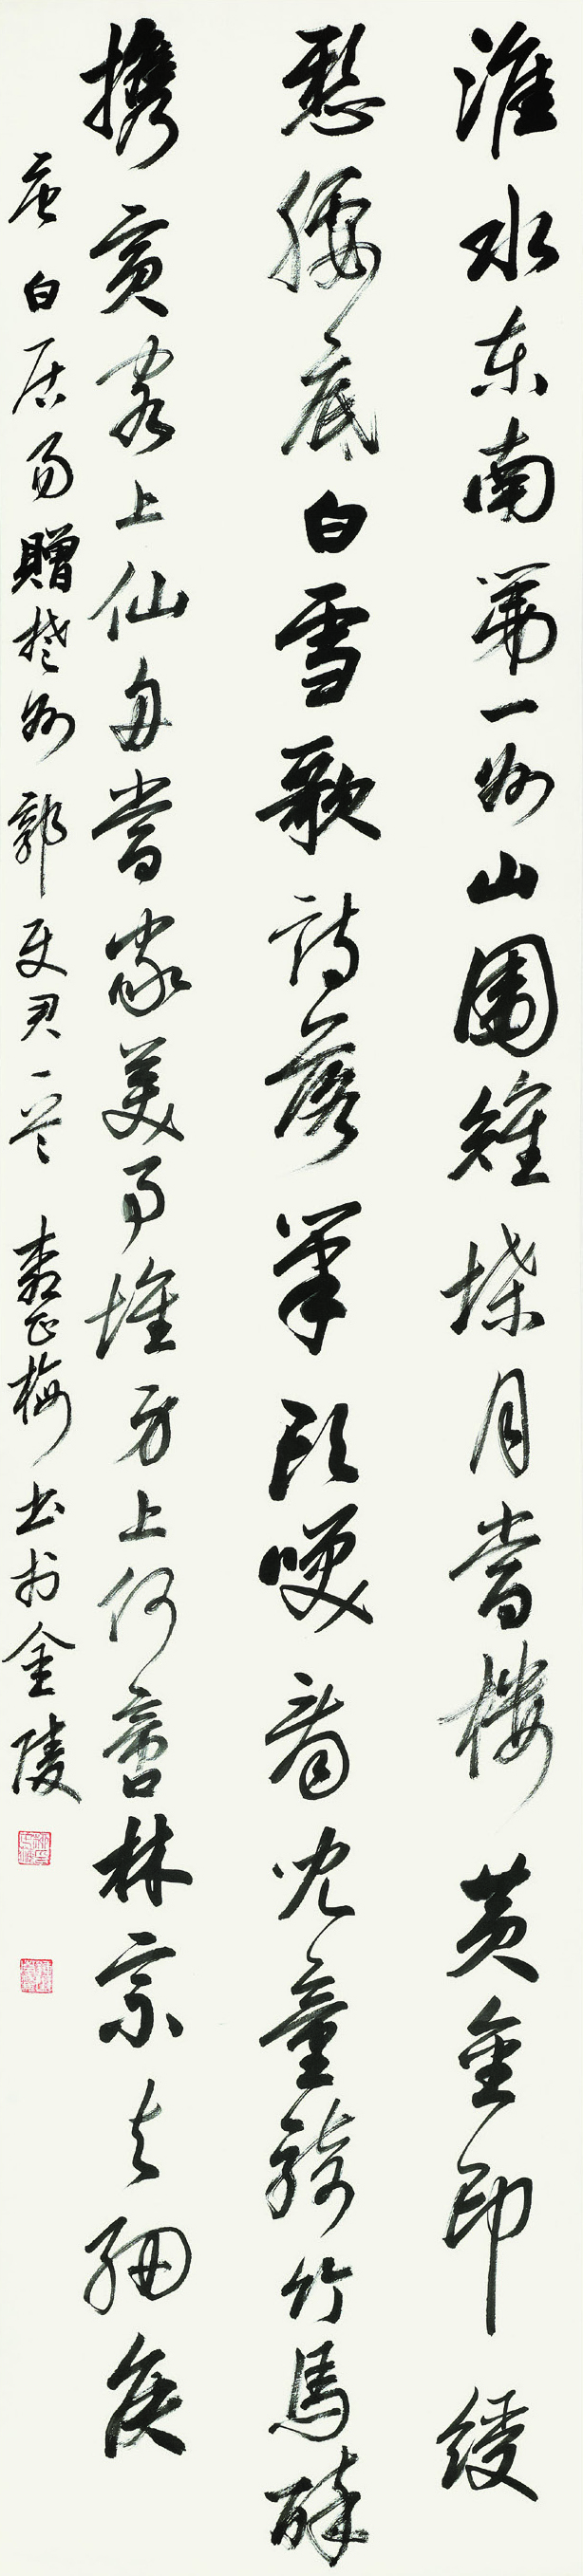 淮水东南第一州山围雉堞月当楼黄金印绶
悬腰底白雪歌诗落笔头笑看儿童骑竹马醉
携宾客上仙舟当家美事堆身上何啻林宗与细侯
唐白居易赠楚州郭使君一首 梅书于金陵